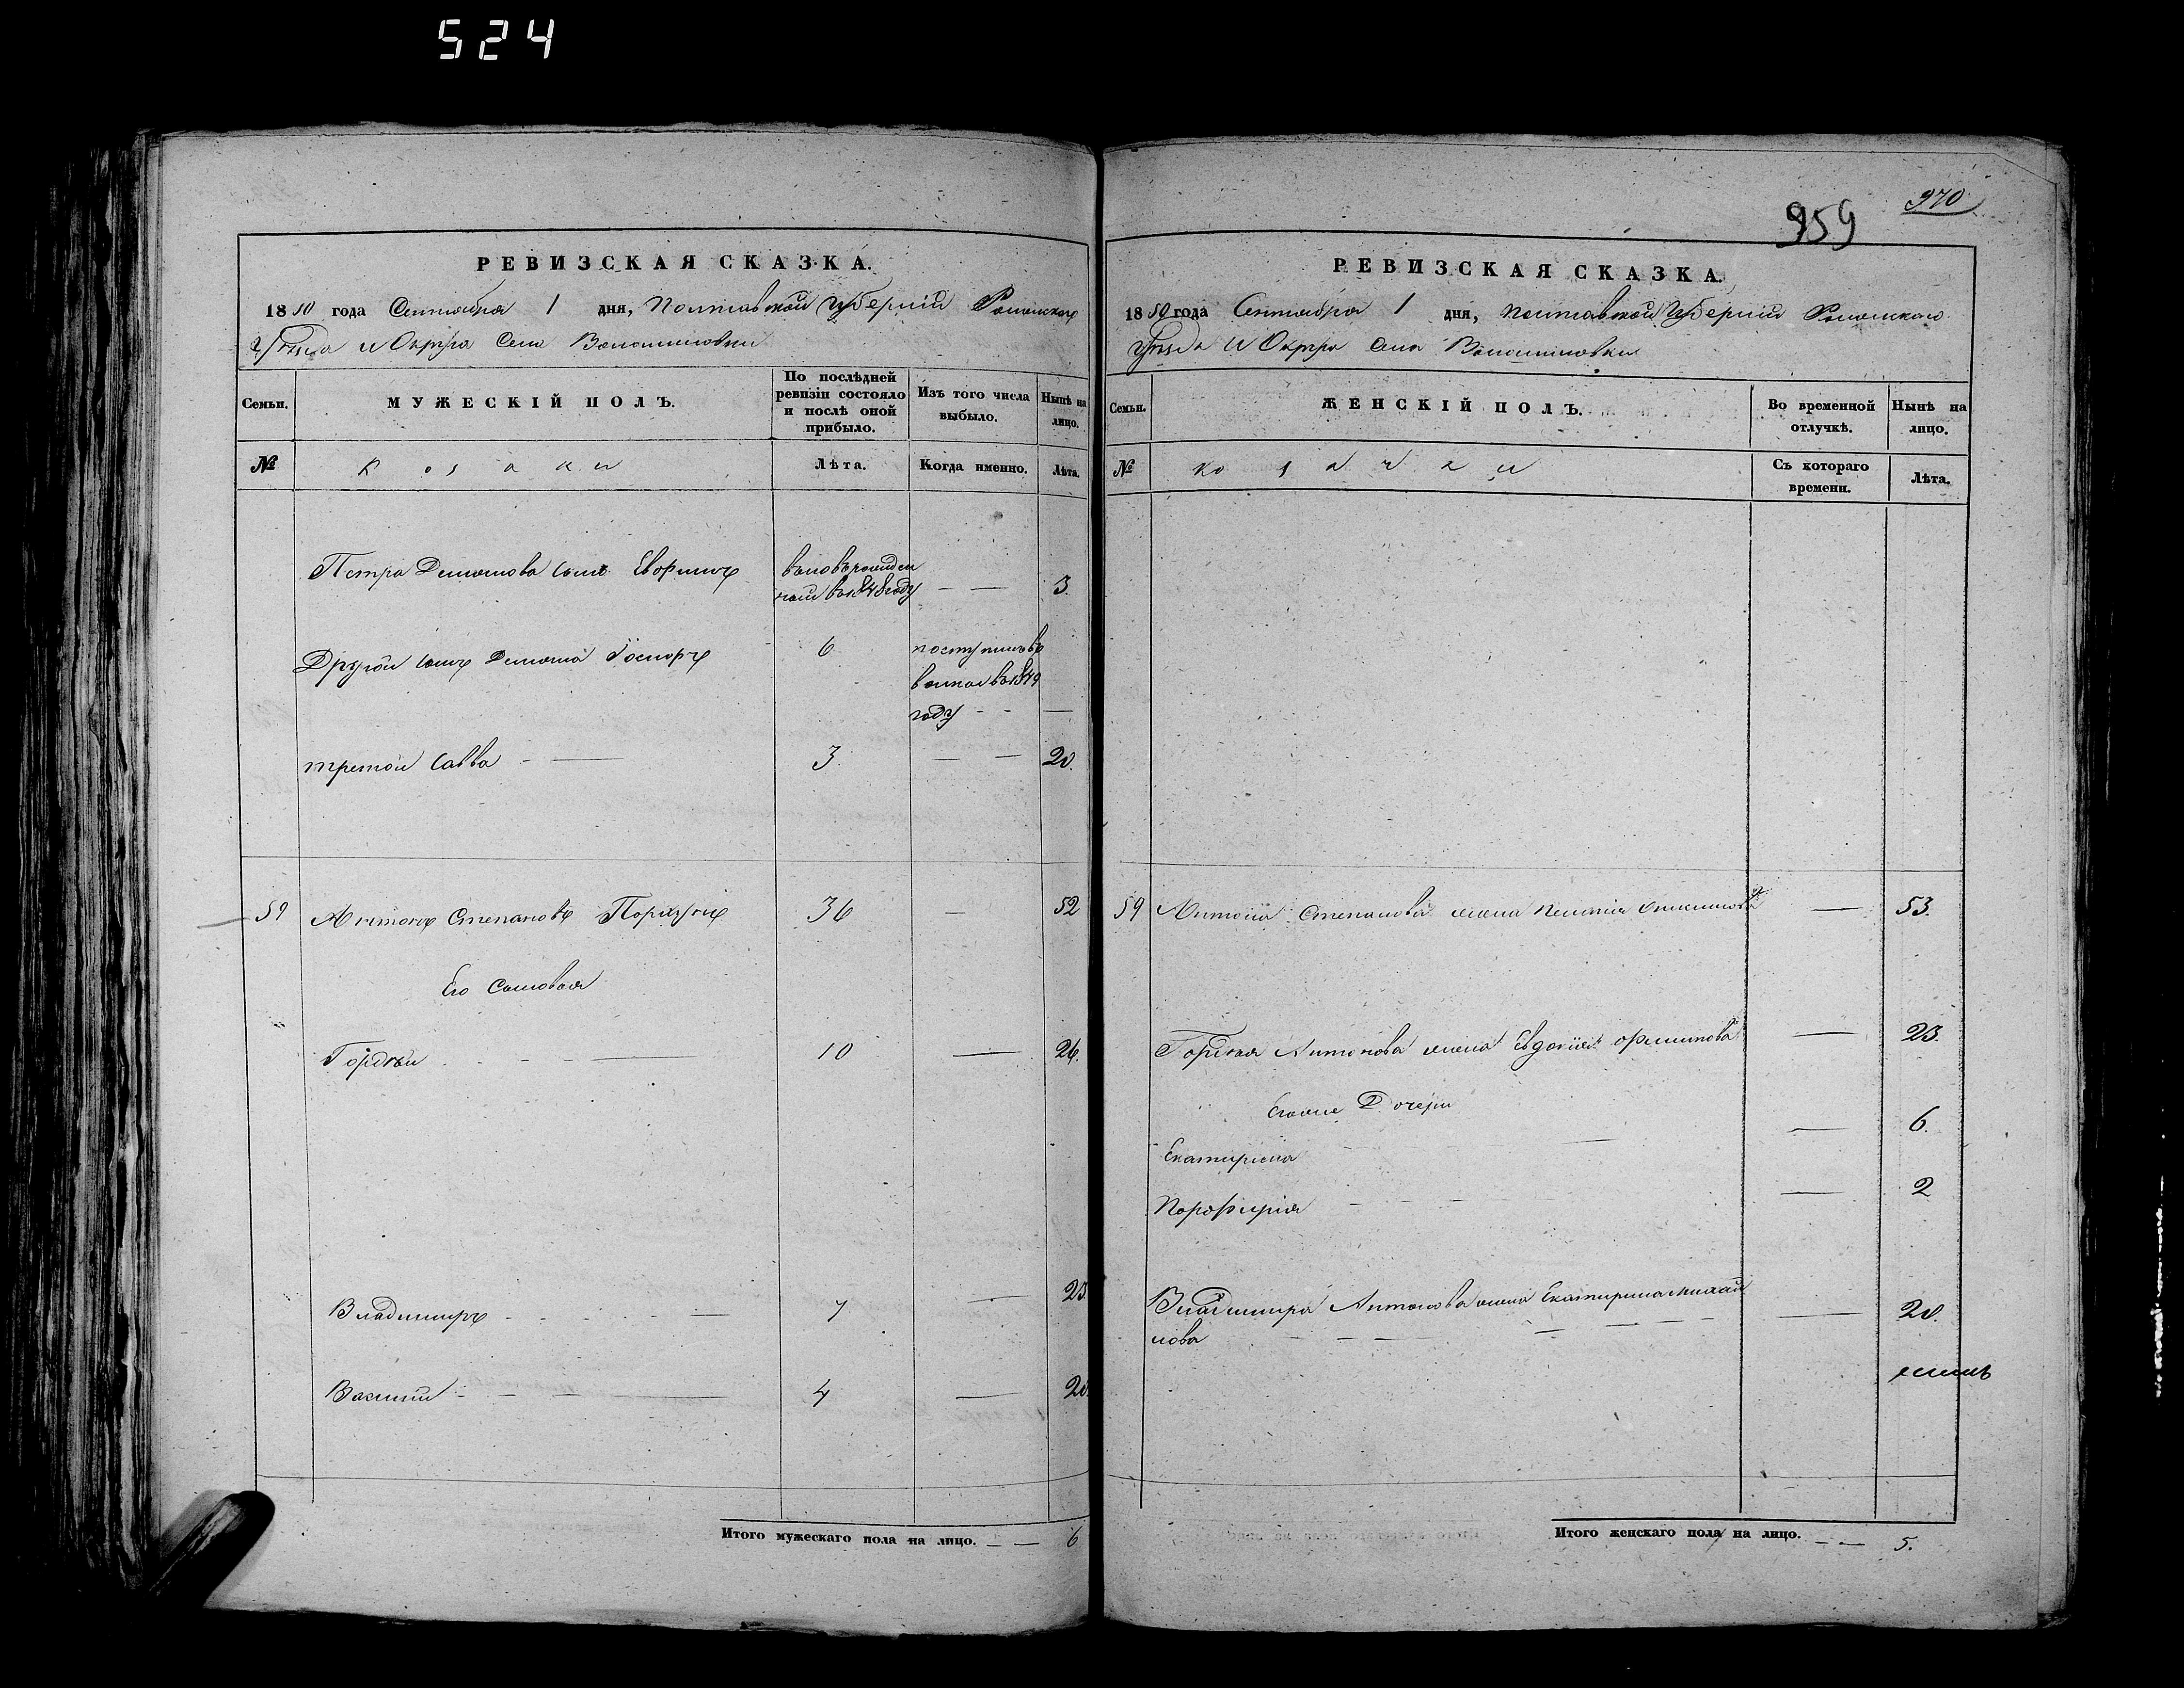 524
РЕВИЗСКАЯ СКАЗКА.
1850 года Сентября 1 дня, Полтавской Губерніи Роменского
Уѣзда и Округа Села Волошиновки
Семьи.
МУЖЕСКІЙ ПОЛЪ.
По послѣдней ревизіи состояло и послѣ оной прибыло.
Изъ того числа выбыло.
Нынѣ на лицо.
№
Козаки
Лѣта.
Когда именно.
Лѣта.
Петра Демьянова сынъ
1848 году — — 3.
Другой сынъ Демьяна 6 поступилъ въ
1849
году - - —
третой Савва - — 3 — — 20.
59 Антонъ Степановъ 36 — 52
Его Сыновья
Гордѣй - - - — 10 — 26.
Владимиръ - - - - — 7 — 23.
Василій - - — — 4 — 20
Итого мужескаго пола на лицо. — — 6
959
970
РЕВИЗСКАЯ СКАЗКА.
1850 года Сентября 1 дня, Полтавской Губерніи Роменского
Уѣзда и Округа Села Волошиновки
Семьи.
ЖЕНСКІЙ ПОЛЪ.
Во временной отлучкѣ.
Нынѣ на лицо.
№
Козачки
Съ котораго времени.
Лѣта.
59 Антона Степанова жена — 53.
Гордѣя Антонова жена Евдокія — 23.
Дочери
Екатирина — — 6.
Порофирія - - - — 2
Владимира Антонова жена Екатирина Михай
лова - — — — — - - — 20.
Итого женскаго пола на лицо. — — 5.